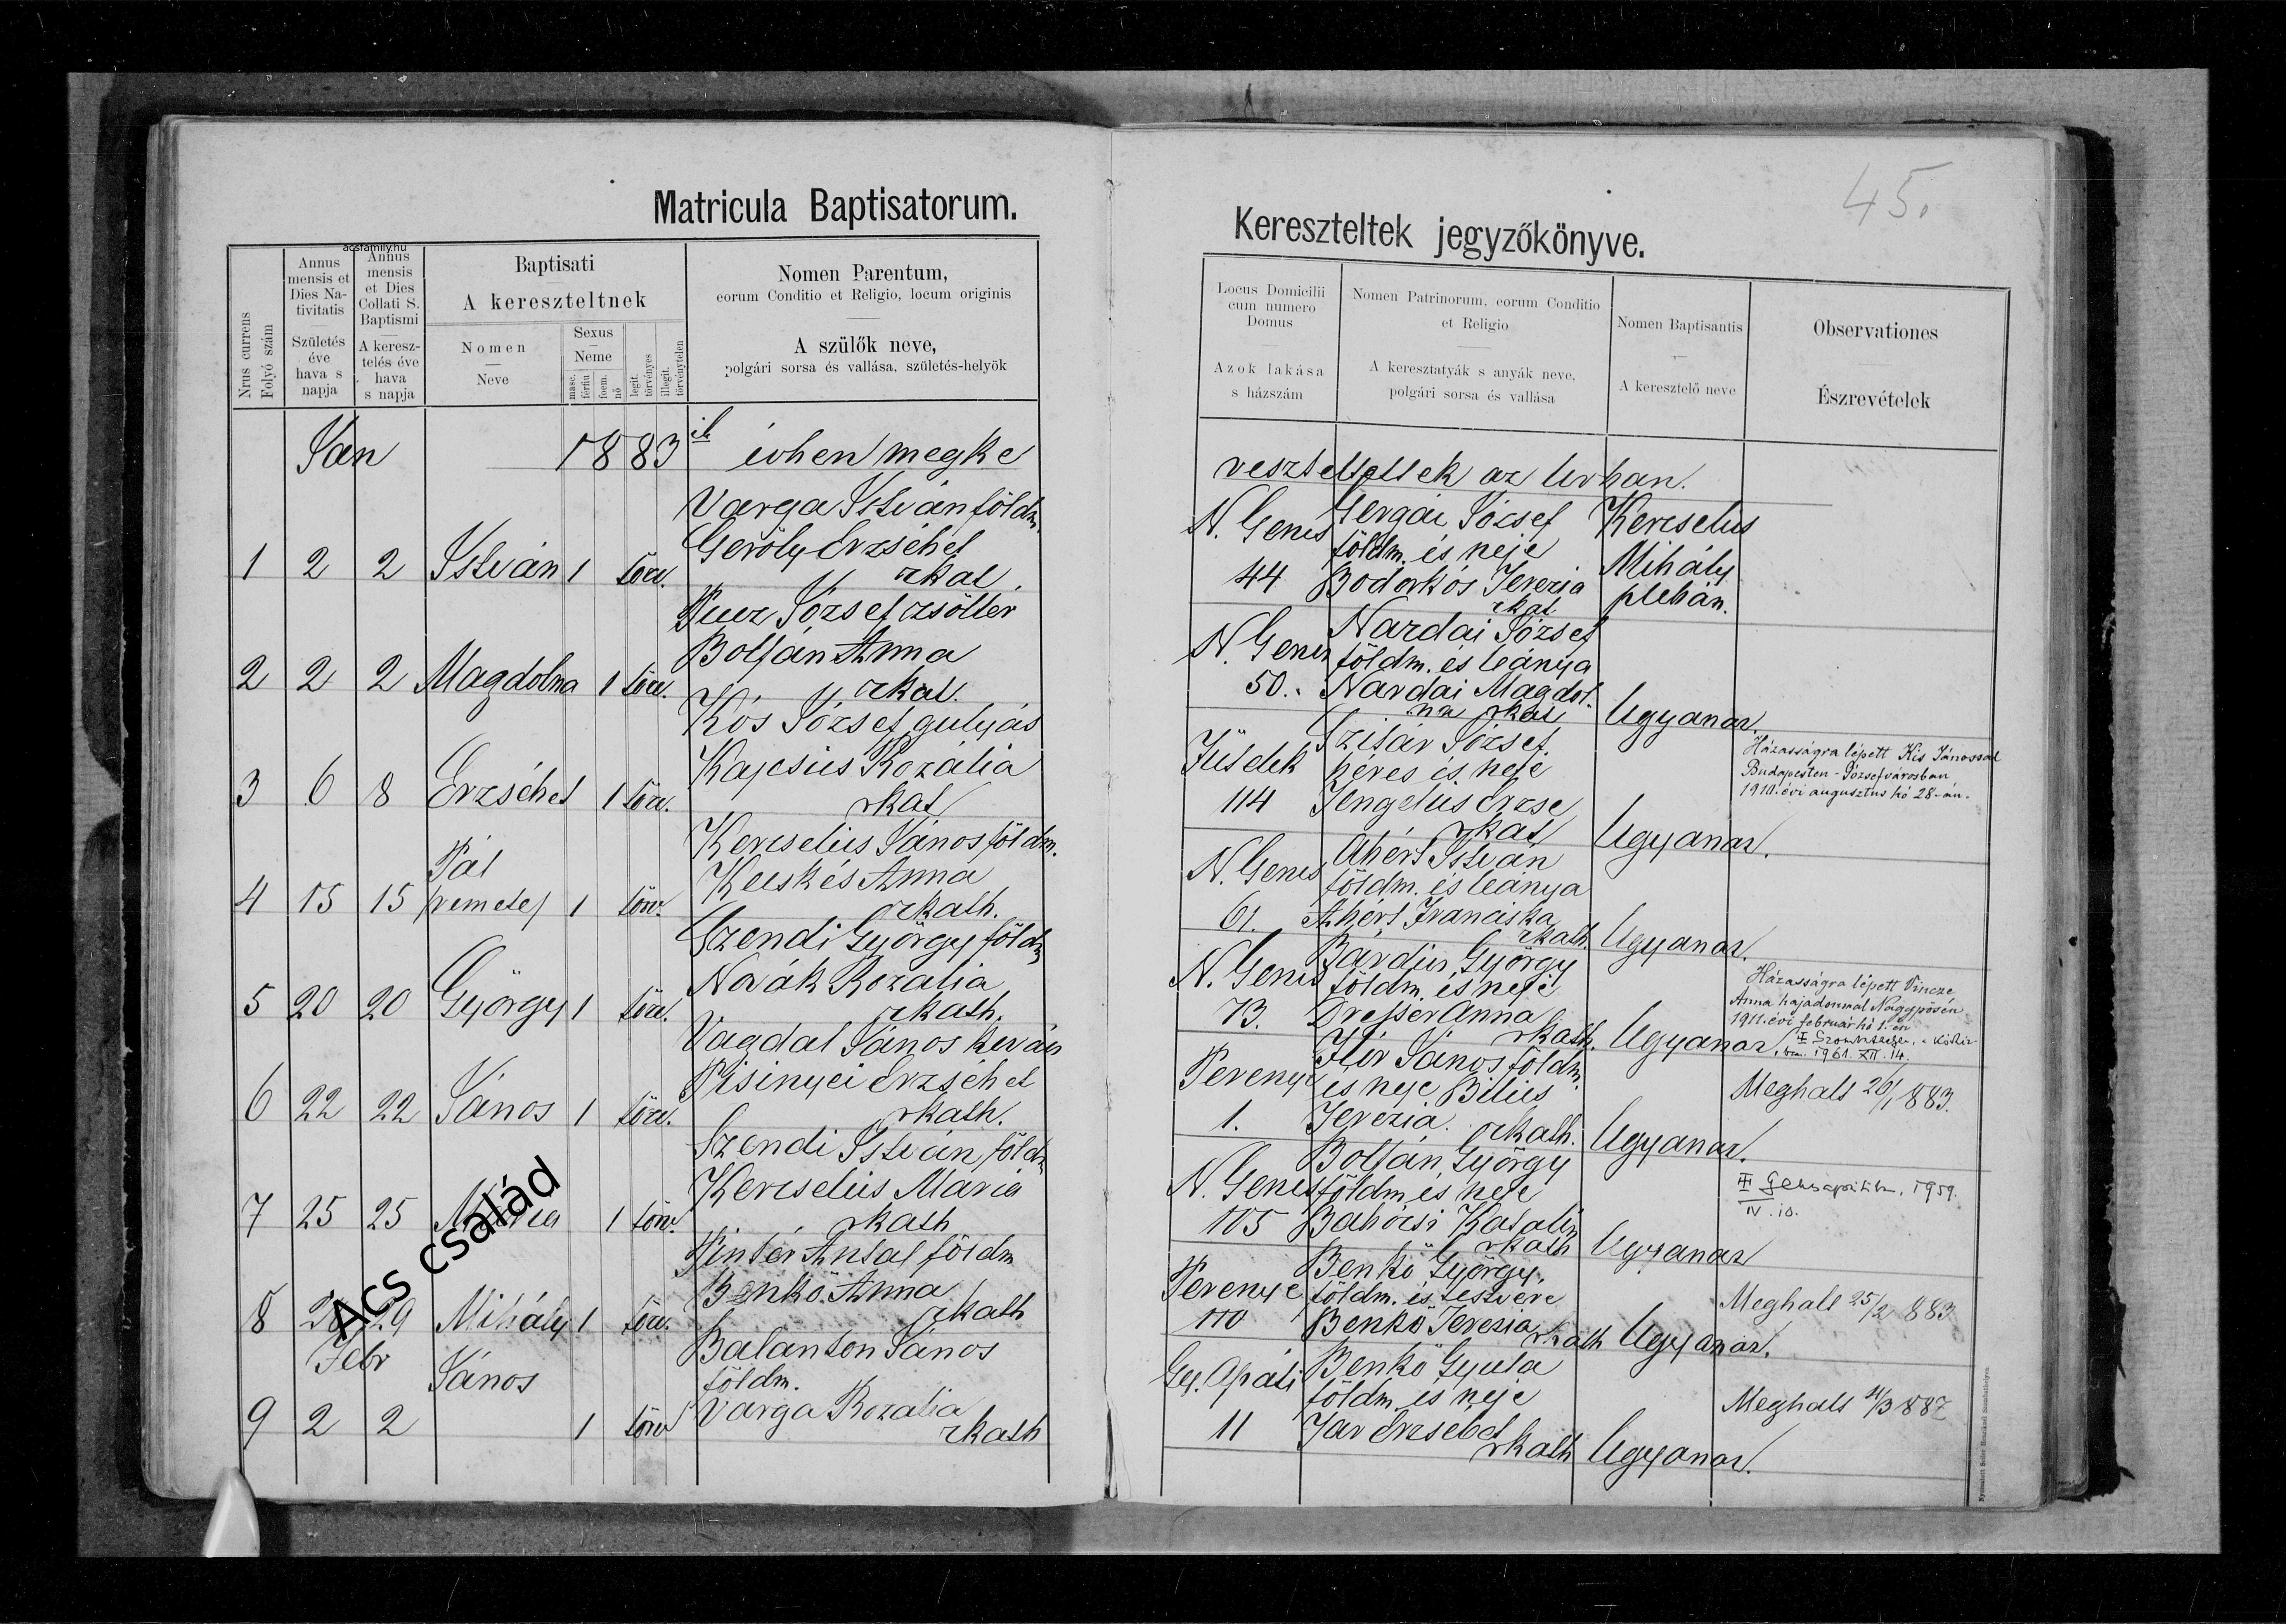 45.
Matricula Baptisatorum.
Kereszteltek jegyzőkönyve.
acsfamily.hu
Nrus currens
Folyó szám
Annus
mensis et
Dies Na-
tivitatis
Születés
éve
hava s
napja
Annus
mensis
et Dies
Collati S.
Baptismi
A keresz-
telés éve
hava
s napja
Baptisati
A kereszteltnek
Nomen
Neve
Sexus
Neme
masc.
férfiu
foem.
nő
legit.
törvényes
illegit.
törvénytelen
Nomen Parentum,
eorum Conditio et Religio, locum originis
A szülők neve,
polgári sorsa és vallása, születés-helyök
Locus Domicilii
cum numero
Domus
Azok lakása
s házszám
Nomen Patrinorum, eorum Conditio
et Religio
A keresztatyák s anyák neve,
polgári sorsa és vallása
Nomen Baptisantis
A keresztelő neve
Observationes
Észrevételek
Jan 1883 ik évben megke
reszteltettek az Urban.
Varga István földm.
Geröly Erzsébet
1 2 2 István 1 törv. rkat.
N. Genes
44
Gergái József
földm. és neje
Bodorkós Terezia
rkat
Kercselics
Mihály
plebán.
József zsöllér
Boltján Anna
2 2 2 Magdolna 1 törv. rkat.
N. Genes
50.
Nardai József
földm. és leánya
Nardai Magdol
na rkat
Ugyanaz.
Kós József gulyás
Kajcsics Rozália
3 6 8 Erzsébet 1 törv. rkat
Füsdek
114
Szitár József
béres és neje
Erzse
rkat
Ugyanaz.
Házasságra lépett Kis Jánossal
Budapesten - Józsefvárosban
1910. évi augusztus hó 28-án.
Kercselics János földm.
Kecskés Anna
4 15 15 Pál
remete 1 törv. rkath.
N. Genes
61.
István
földm. és leánya
Franciska
rkath.
Ugyanaz.
Szendi György földm
Novák Rozalia
5 20 20 György 1 törv. rkath.
N. Genes
73.
Bardics György
földm. és neje
Dresser Anna
rkath.
Ugyanaz
Házasságra lépett Vincze
Anna hajadonnal Nagypösén
1911. évi február hó 1.-én
1961. XII. 14.
Vagdal János
Pisinyei Erzsébet
6 22 22 János 1 törv. rkath.
Perenye
1.
János földm.
és neje Bilics
Terezia. rkath.
Ugyanaz.
Meghalt 26/1 883.
Szendi István földm
Kercselics Maria
7 25 25 Mária 1 törv. rkath
N. Genes
105
Boltján György
földm és neje
Babócsi Katalin
rkath
Ugyanaz
1959.
IV. 10.
Pintér Antal földm
Benkö Anna
8 28 29 Mihály 1 törv. rkath
Perenye
110
Benkö György,
földm. és testvére
Benkö Terezia
rkath
Ugyanaz.
Meghalt 25/2 883
Febr
Balanton János
földm.
Varga Rozalia
9 2 2 János 1 törv rkath
Gy. Apáti
11
Benkö Gyula
földm és neje
Erzsebet
rkath
Ugyanaz.
Meghalt 4/3 887
Acs család